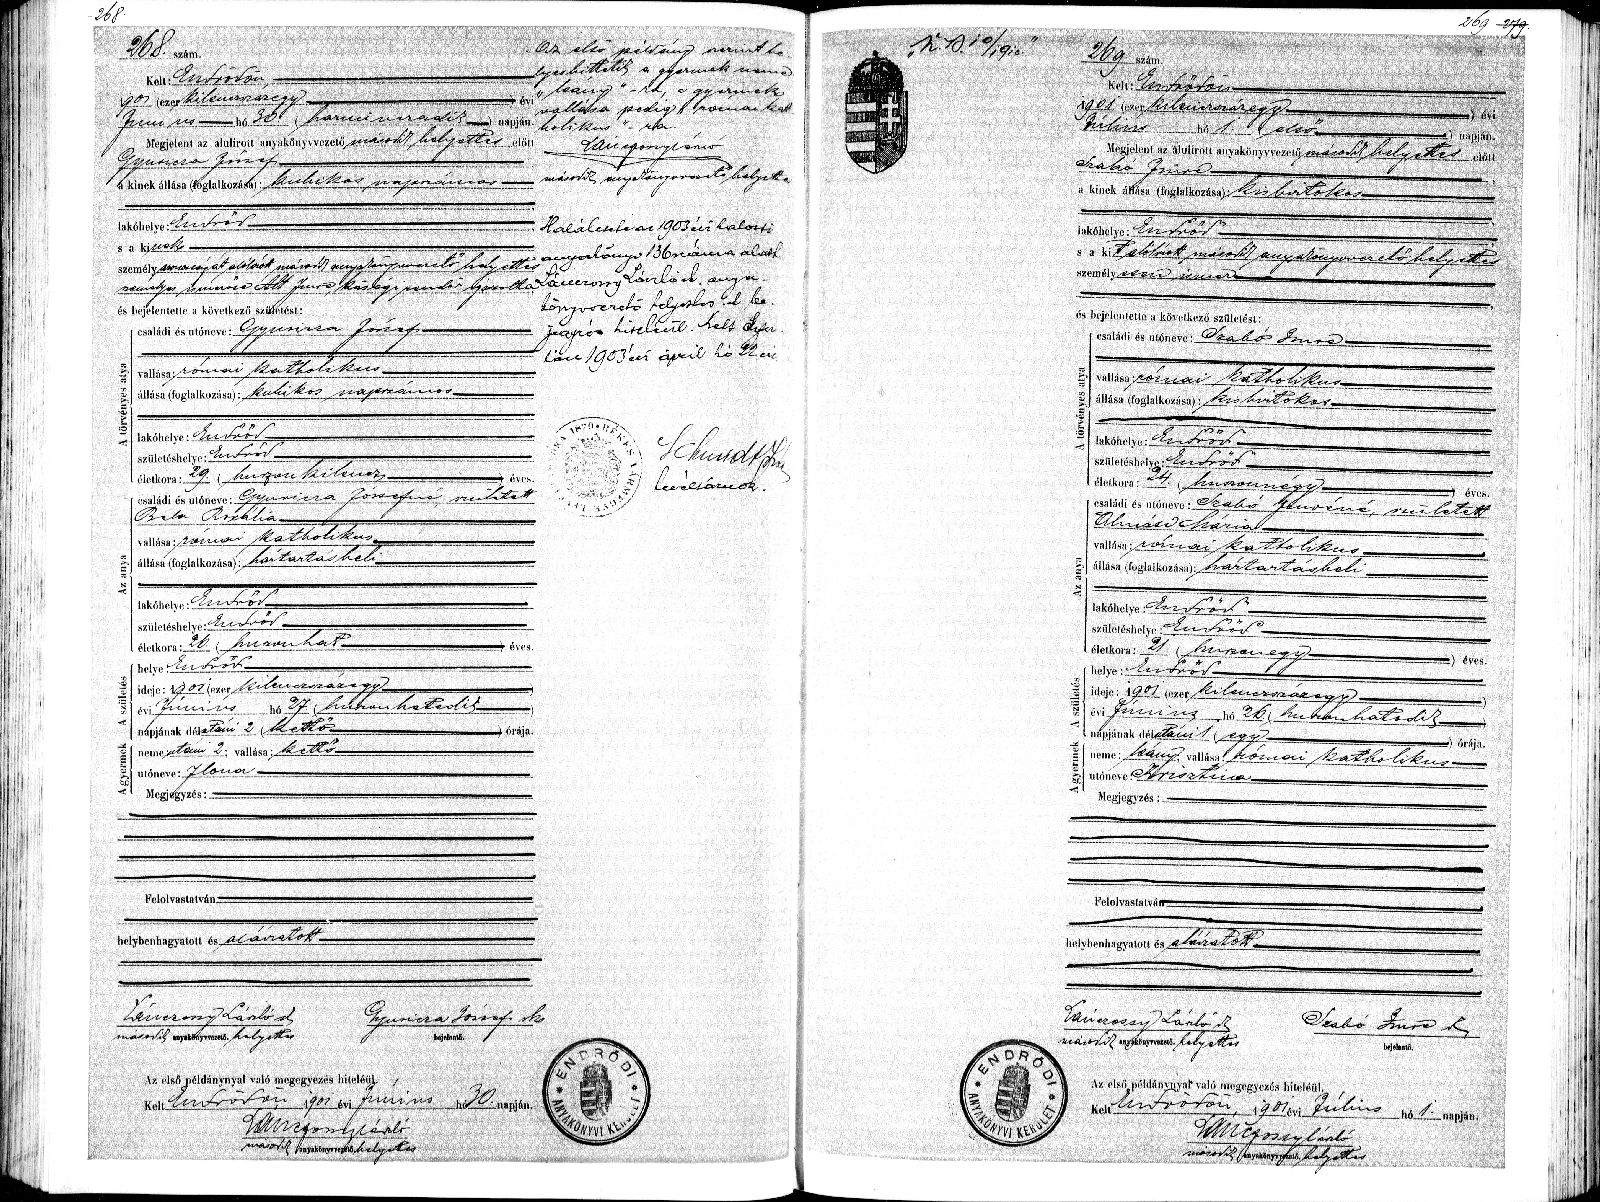 268.
268. szám.
Kelt: Endrődön
901 (ezer kilenczszázegy) évi
Június hó 30 (harminczadik) napján.
Megjelent az alulirott anyakönyvvezető második helyettes előtt
Gyuricza József
a kinek állása (foglalkozása): kubikos napszámos
lakóhelye: Endrőd
s a kinek
személyazonosságát alólírott másodh. anyakönyvvezető helyettes
és bejelentette a következő születést:
A törvényes atya
családi és utóneve: Gyuricza József
vallása: római katholikus
állása (foglalkozása): kubikos napszámos
lakóhelye: Endrőd
születéshelye: Endrőd
életkora: 29 (huszonkilencz) éves.
Az anya
családi és utóneve: Gyuricza Józsefné, született
Rozália
vallása: római katholikus
állása (foglalkozása): háztartásbeli
lakóhelye: Endrőd
születéshelye: Endrőd
életkora: 26 (huszonhat) éves.
A születés
helye: Endrőd
ideje: 1901 (ezer kilenczszázegy)
évi Június hó 27 (huszonhetedik)
napjának délutáni 2 (kettő) órája.
A gyermek
neme: utáni 2; vallása: kettő
utóneve: Ilona
Megjegyzés:
Felolvastatván
helybenhagyatott és aláíratott
Tánczossy László sk
másodh. anyakönyvvezető. helyettes
Gyuricza József sk
bejelentő.
Az első példánynyal való megegyezés hiteléül.
Kelt Endrődön 1901 évi Június hó 30. napján.
Tánczossy László
másodh. anyakönyvvezető. helyettes
Az első példány szerint he-
lyesbittetik a gyermek neme
"leány"-ra, a gyermek
vallása pedig "római kat-
holikus"-ra
Tánczossy László
másodh. anyakönyvvezető helyettes
Halálesete az 1903 évi halotti
anyakönyv 136 száma alatt
Tánczossy László sk. anya-
könyvvezető helyettes
hiteléül. Kelt
1903 évi április hó 22 én
BÉKÉS VÁRMEGYE
Schmidt
levéltárnok.
ENDRŐDI
ANYAKÖNYVI KERÜLET
269 279.
269 szám.
Kelt: Endrődön
1901 (ezer kilenczszázegy) évi
Július hó 1. (első) napján.
Megjelent az alulirott anyakönyvvezető második helyettes előtt
Szabó Imre
a kinek állása (foglalkozása): kisbirtokos
lakóhelye: Endrőd
s a kit alólírott másodh. anyakönyvvezető helyettes
személyesen ismer
és bejelentette a következő születést:
A törvényes atya
családi és utóneve: Szabó Imre
vallása: római katholikus
állása (foglalkozása): kisbirtokos
lakóhelye: Endrőd
születéshelye: Endrőd
életkora: 24 (huszonnégy) éves.
Az anya
családi és utóneve: Szabó Imréné, született
Almási Mária
vallása: római katholikus
állása (foglalkozása): háztartásbeli
lakóhelye: Endrőd
születéshelye: Endrőd
életkora: 21 (huszonegy) éves.
A születés
helye: Endrőd
ideje: 1901 (ezer kilenczszázegy)
évi Június hó 26 (huszonhatodik)
napjának délutáni 1 (egy) órája.
A gyermek
neme: leány; vallása: római katholikus
utóneve: Krisztina
Megjegyzés:
Felolvastatván
helybenhagyatott és aláíratott
Tánczossy László sk
másodh. anyakönyvvezető. helyettes
Szabó Imre sk
bejelentő.
Az első példánynyal való megegyezés hiteléül.
Kelt Endrődön, 1901 évi Július hó 1. napján.
Tánczossy László
másodh. anyakönyvvezető. helyettes
ENDRŐDI
ANYAKÖNYVI KERÜLET